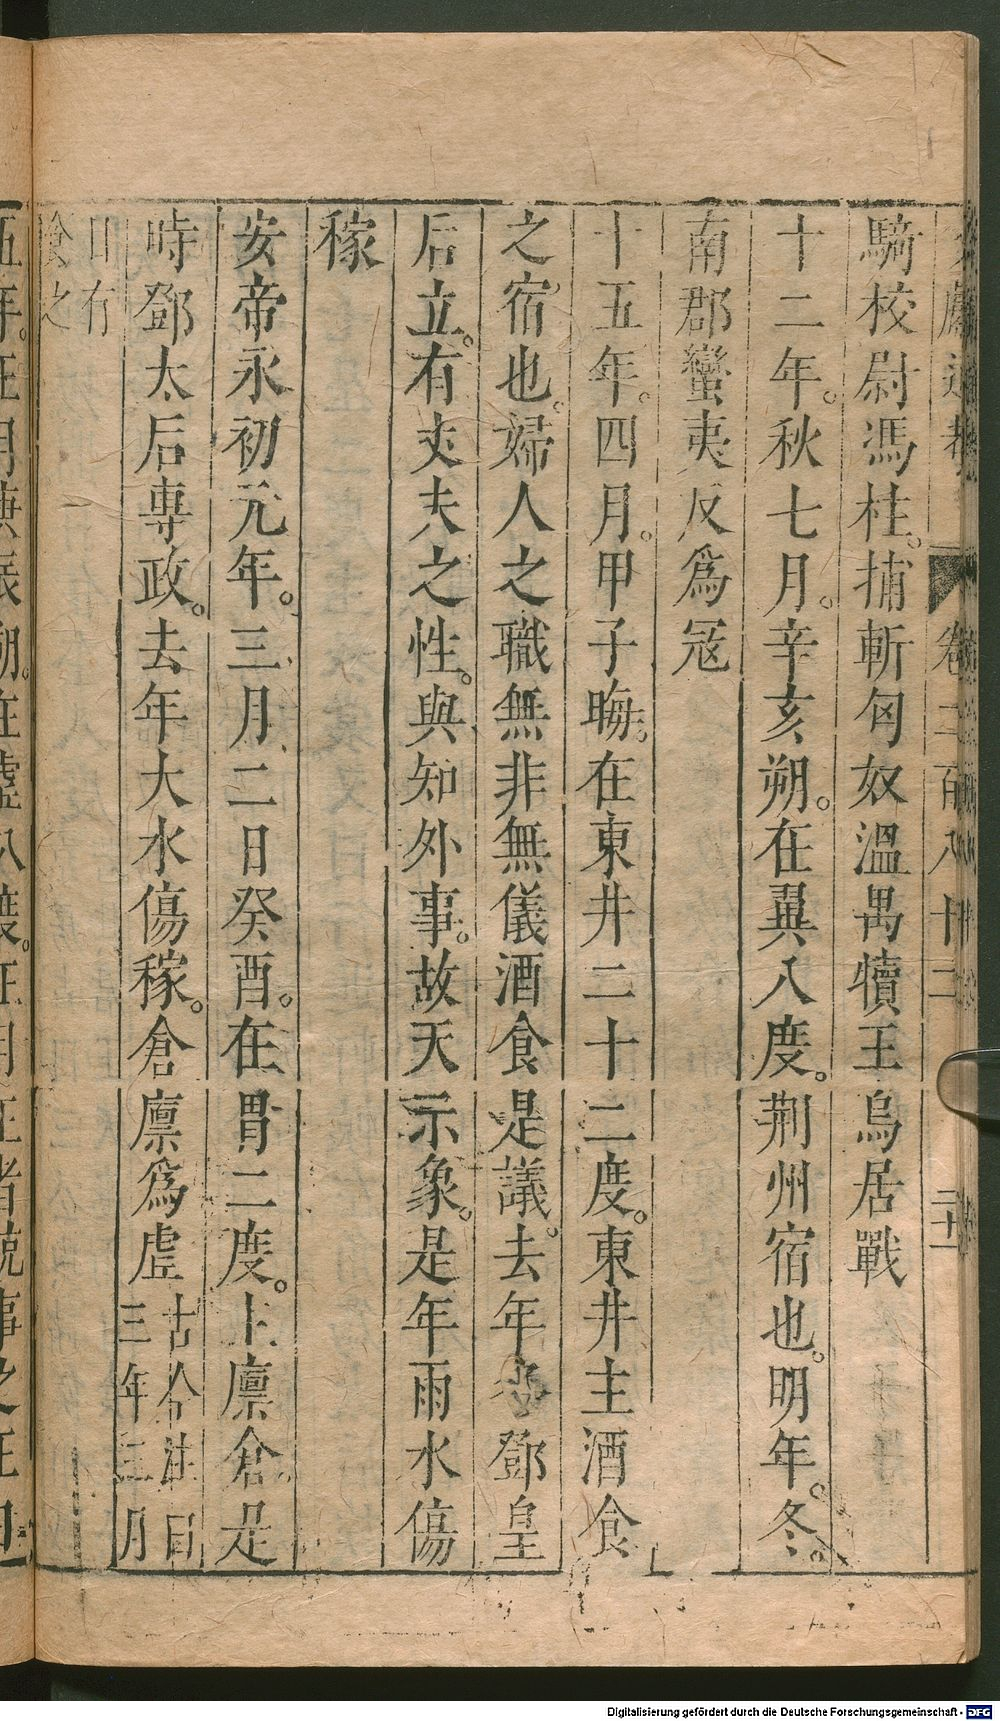 文獻通考 卷二百八十二 二十一
騎校尉馮柱。捕斬匈奴溫禺犢王烏居戰
十二年。秋七月。辛亥朔。在翼八度。荆州宿也。明年。冬。
南郡蠻夷反爲冦
十五年。四月。甲子晦。在東井二十二度。東井主酒食
之宿也。婦人之職無非無儀酒食是議。去年冬鄧皇
后立。有丈夫之性。與知外事。故天示象。是年雨水傷
稼
安帝永初元年。三月二日癸酉。在胃二度。主廪倉。是
時鄧太后專政。去年大水傷稼。倉廪爲虚 古今注曰三年三月
日有食之
Digitalisierung gefördert durch die Deutsche Forschungsgemeinschaft - DFG